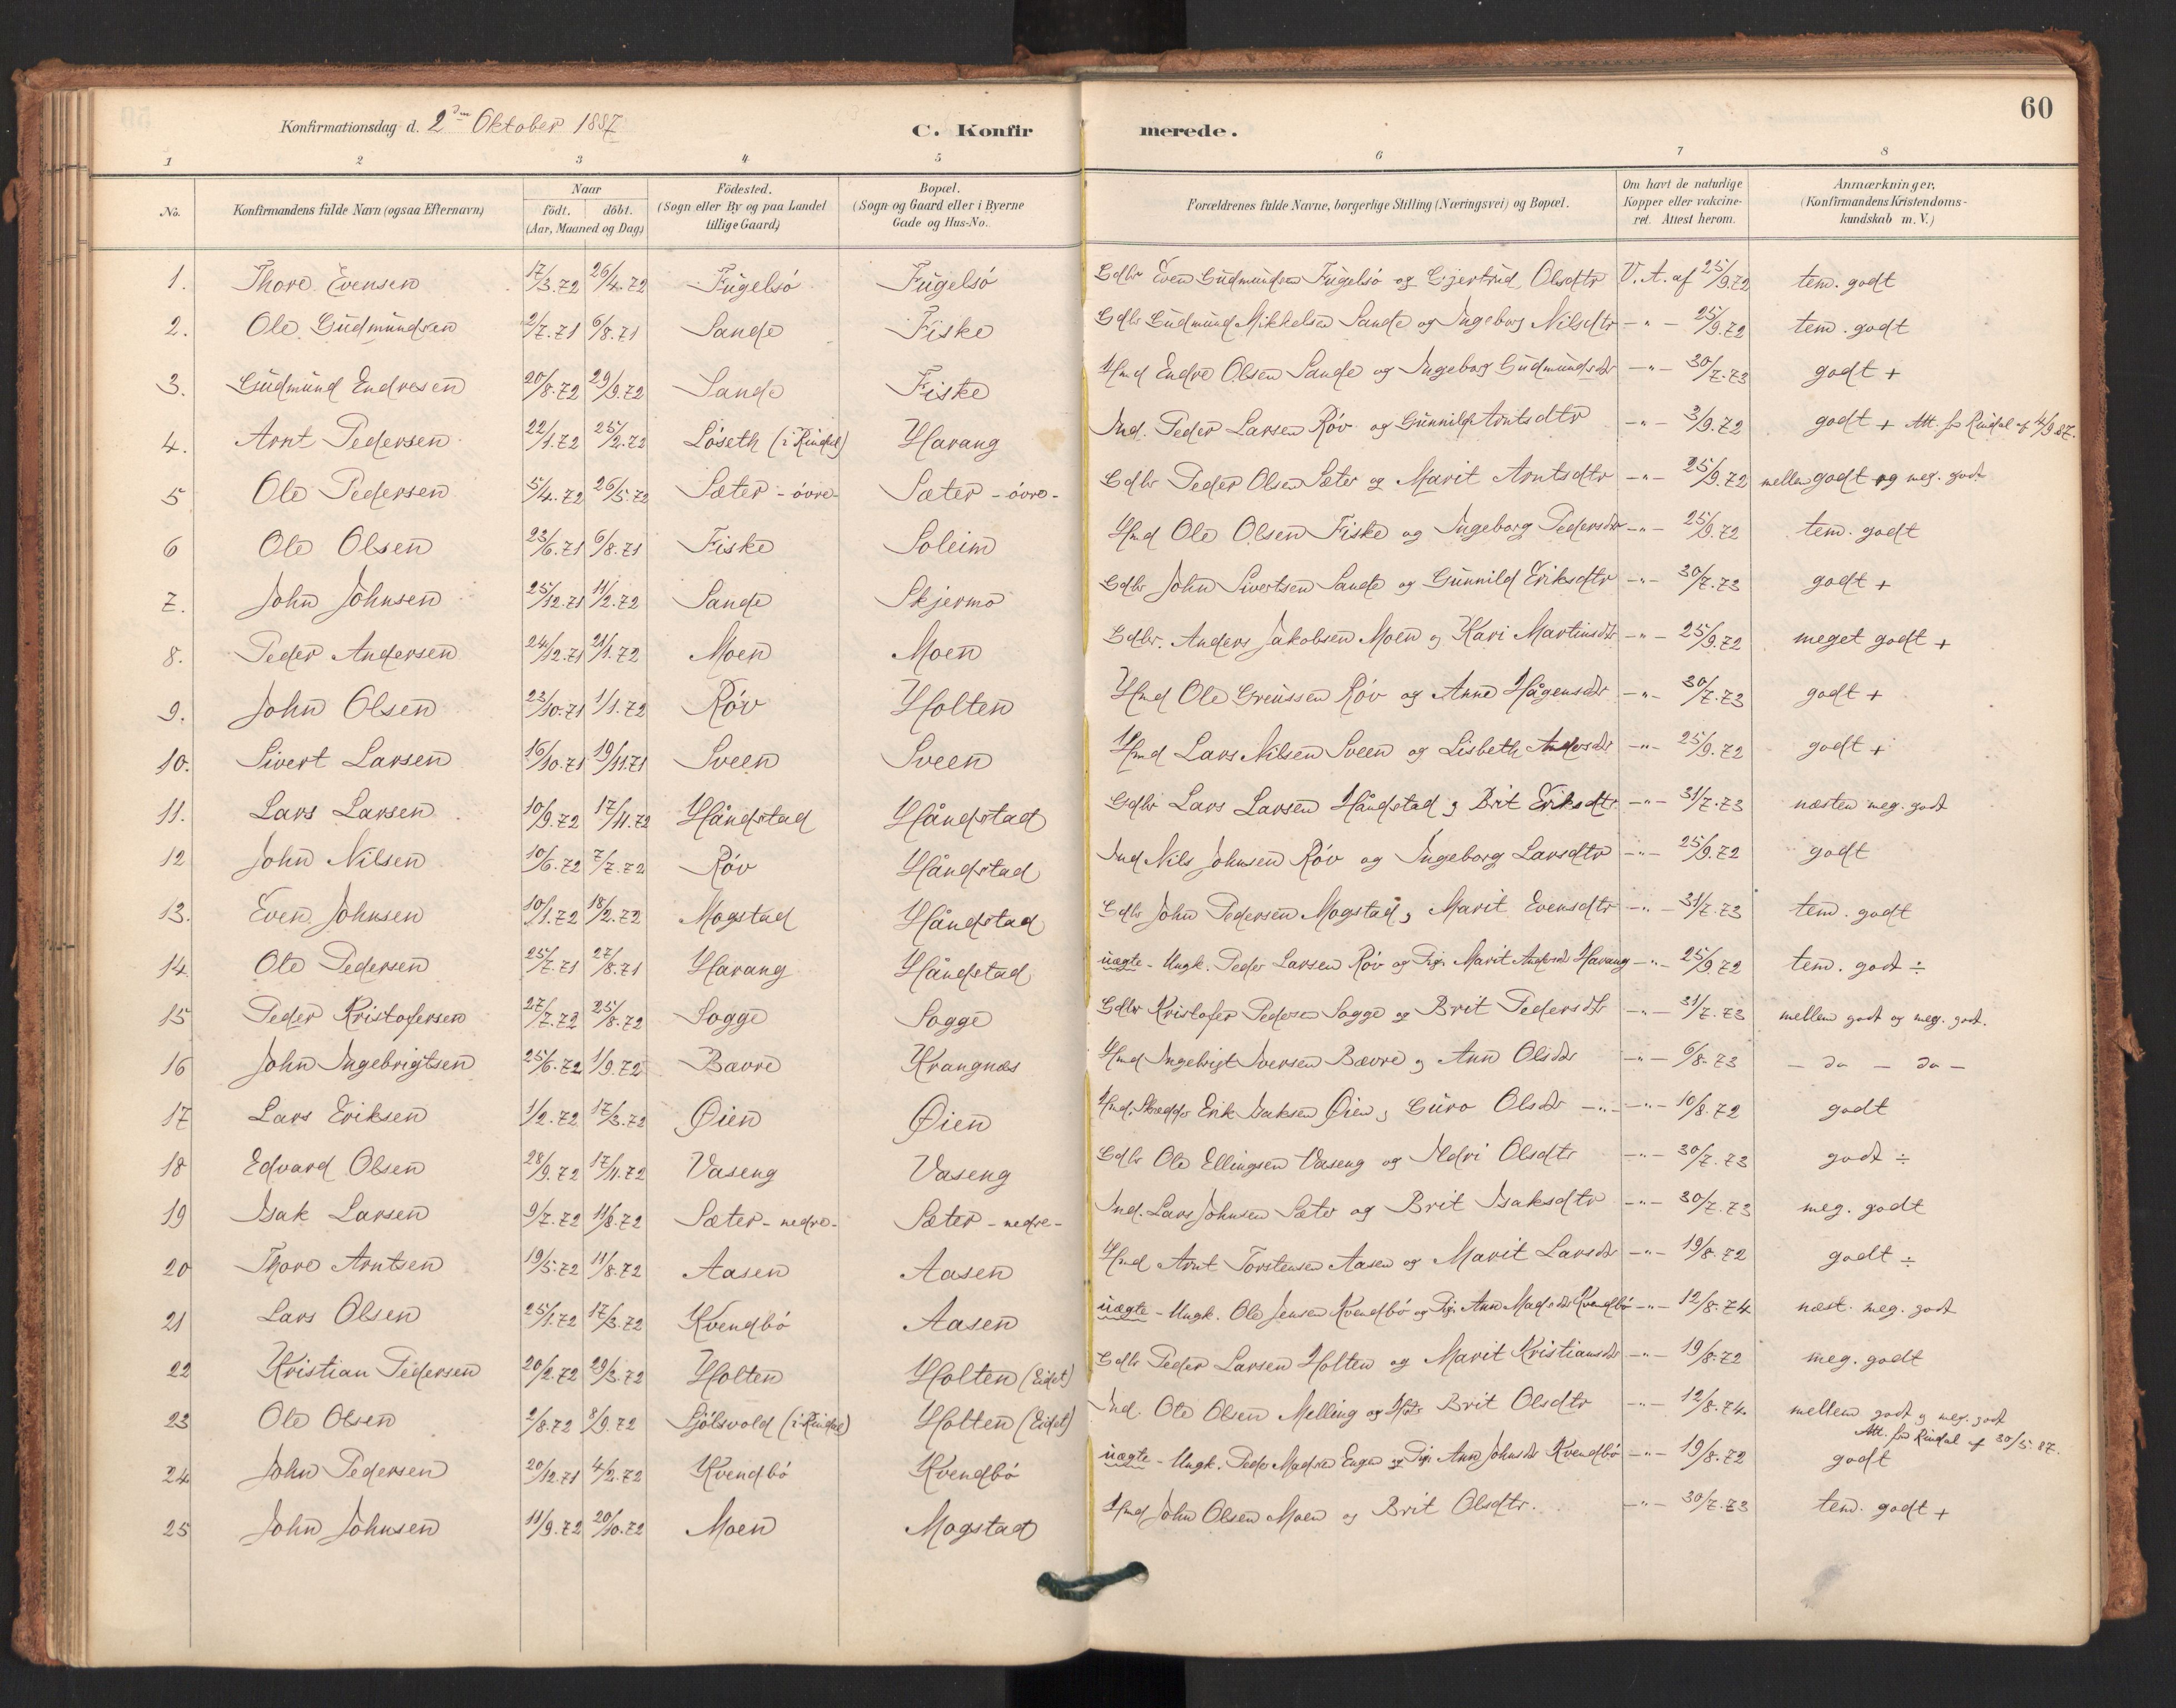 60
Konfirmationsdag d. 2den Oktober 1887
C. Konfirmerede.
1 2 3 4 5 6 7 8
No. Konfirmandens fulde Navn (ogsaa Efternavn) Naar födt. döbt. (Aar, Maaned og Dag) Födested. (Sogn eller By og paa Landet tillige Gaard) Bopæl. (Sogn og Gaard eller i Byerne Gade og Hus-No. Forældrenes fulde Navne, borgerlige Stilling (Næringsvei) og Bopæl. Om havt de naturlige Kopper eller vakcineret. Attest herom. Anmærkninger, (Konfirmandens Kristendomskundskab m. V.)
1. Thore Evensen 17/3.72 26/4.72 Fugelsö Fugelsö Gdbr Even Gudmundsen Fugelsö og Gjertrud Olsdtr V. A. af 25/9.72 tem. godt
2. Ole Gudmundsen 2/7.71 6/8.71 Sande Fiske Gdbr Gudmund Mikkelsen Sande og Ingeborg Nilsdtr -"- 25/9.72 tem. godt
3. Gudmund Endresen 20/8.72 29/9.72 Sande Fiske Hmd Endre Olsen Sande og Ingeborg Gudmundsdtr -"- 30/7.73 godt +
4. Arnt Pedersen 22/1.72 25/2.72 Löseth (i Rindal) Harang Ind. Peder Larsen Röv og Gunnild Arntsdtr -"- 3/9.72 godt + Att. fra Rindal af 4/9 87.
5 Ole Pedersen 5/4.72 26/5.72 Sæter - övre - Sæter - övre - Gdbr Peder Olsen Sæter og Marit Arntsdtr -"- 25/9.72 mellem godt og meg. godt
6 Ole Olsen 23/6.71 6/8.71 Fiske Soleim Hmd Ole Olsen Fiske og Ingeborg Pedersdtr -"- 25/9.72 tem. godt
7. John Johnsen 25/12.71 11/2.72 Sande Skjermo Gdbr John Sivertsen Sande og Gunnild Eriksdtr -"- 30/7.73 godt +
8. Peder Andersen 24/12.71 21/1.72 Moen Moen Gdbr. Anders Jakobsen Moen og Kari Martinsdtr -"- 25/9.72 meget godt +
9. John Olsen 23/10.71 1/1.72 Röv Holten Hmd Ole Röv og Anne Hågensdtr -"- 30/7.73 godt +
10. Sivert Larsen 16/10.71 19/11.71 Sveen Sveen Hmd Lars Nilsen Sveen og Lisbeth Andersdtr -"- 25/9.72 godt +
11. Lars Larsen 10/9.72 17/11.72 Håndstad Håndstad Gdbr Lars Larsen Håndstad og Brit Eriksdtr -"- 31/7.73 næsten meg. godt
12 John Nilsen 10/6.72 7/7.72 Röv Håndstad Ind Nils Johnsen Röv og Ingeborg Larsdtr -"- 25/9.72 godt
13. Even Johnsen 10/1.72 18/2.72 Mogstad Håndstad Gdbr John Pedersen Mogstad og Marit Evensdtr -"- 31/7.73 tem. godt
14 Ole Pedersen 25/7.71 27/8.71 Harang Håndstad uægte - Ungk. Peder Larsen Röv og Pige Marit Andersdtr Harang -"- 25/9.72 tem. godt ÷
15 Peder Kristofersen 27/7.72 25/8.72 Sogge Sogge Gdbr Kristofer Pedersen Sogge og Brit Pedersdtr -"- 31/7.73 mellem godt og meg. godt.
16 John Ingebrigtsen 25/6.72 1/9.72 Bævre Krangnæs Hmd Ingebrigt Iversen Bævre og Ann Olsdtr -"- 6/8.73 - do - do -
17 Lars Eriksen 1/2.72 17/3.72 Øien Øien Hmd. Skrædder Erik Isaksen Øien og Guro Olsdtr -"- -"- 10/8.72 godt
18 Edvard Olsen 28/9.72 17/11.72 Vaseng Vaseng Gdbr Ole Ellingsen Vaseng og Ildri Olsdtr -"- 30/7.73 godt ÷
19 Isak Larsen 9/7.72 11/8.72 Sæter - nedre - Sæter - nedre - Ind. Lars Johnsen Sæter og Brit Isaksdtr -"- 30/7.73 meg. godt
20 Thore Arntsen 19/5.72 11/8.72 Aasen Aasen Hmd Arnt Torstensen Aasen og Marit Larsdtr -"- 19/8.72 godt ÷
21 Lars Olsen 25/1.72 17/3.72 Kvendbö Aasen uægte - Ungk. Ole Jensen Kvendbö og Pige Ann Madsdtr Kvendbö -"- 12/8.74 næst. meg. godt
22 Kristian Pedersen 20/2.72 29/3.72 Holten Holten (Eidet) Gdbr Peder Larsen Holten og Marit Kristiansdtr -"- 19/8.72 meg. godt
23 Ole Olsen 2/8.72 8/9.72 Sjölsvold (i Rindal) Holten (Eidet) Ind. Ole Olsen Melling og Brit Olsdtr -"- 12/8.74. mellem godt og meg. godt
Att. fra Rindal af 30/5.87.
24 John Pedersen 20/12.71 4/2.72 Kvendbö Kvendbö uægte - Ungk. Peder Madsen Engen og Pige Ann Johnsdtr Kvendbö -"- 19/8.72 godt
25 John Johnsen 11/9.72 20/10.72 Moen Mogstad Hmd John Olsen Moen og Brit Olsdtr. -"- 30/7.73 tem. godt +